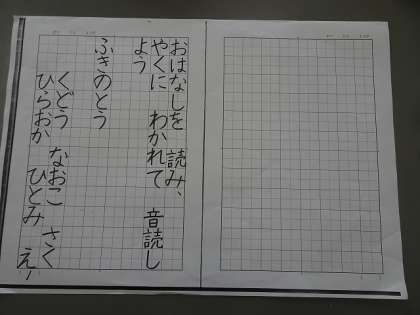 おはなしを 読み、
やくに わかれて 音読し
よう
ふきのとう
くどう なおこ さく
ひらおか ひとみ え